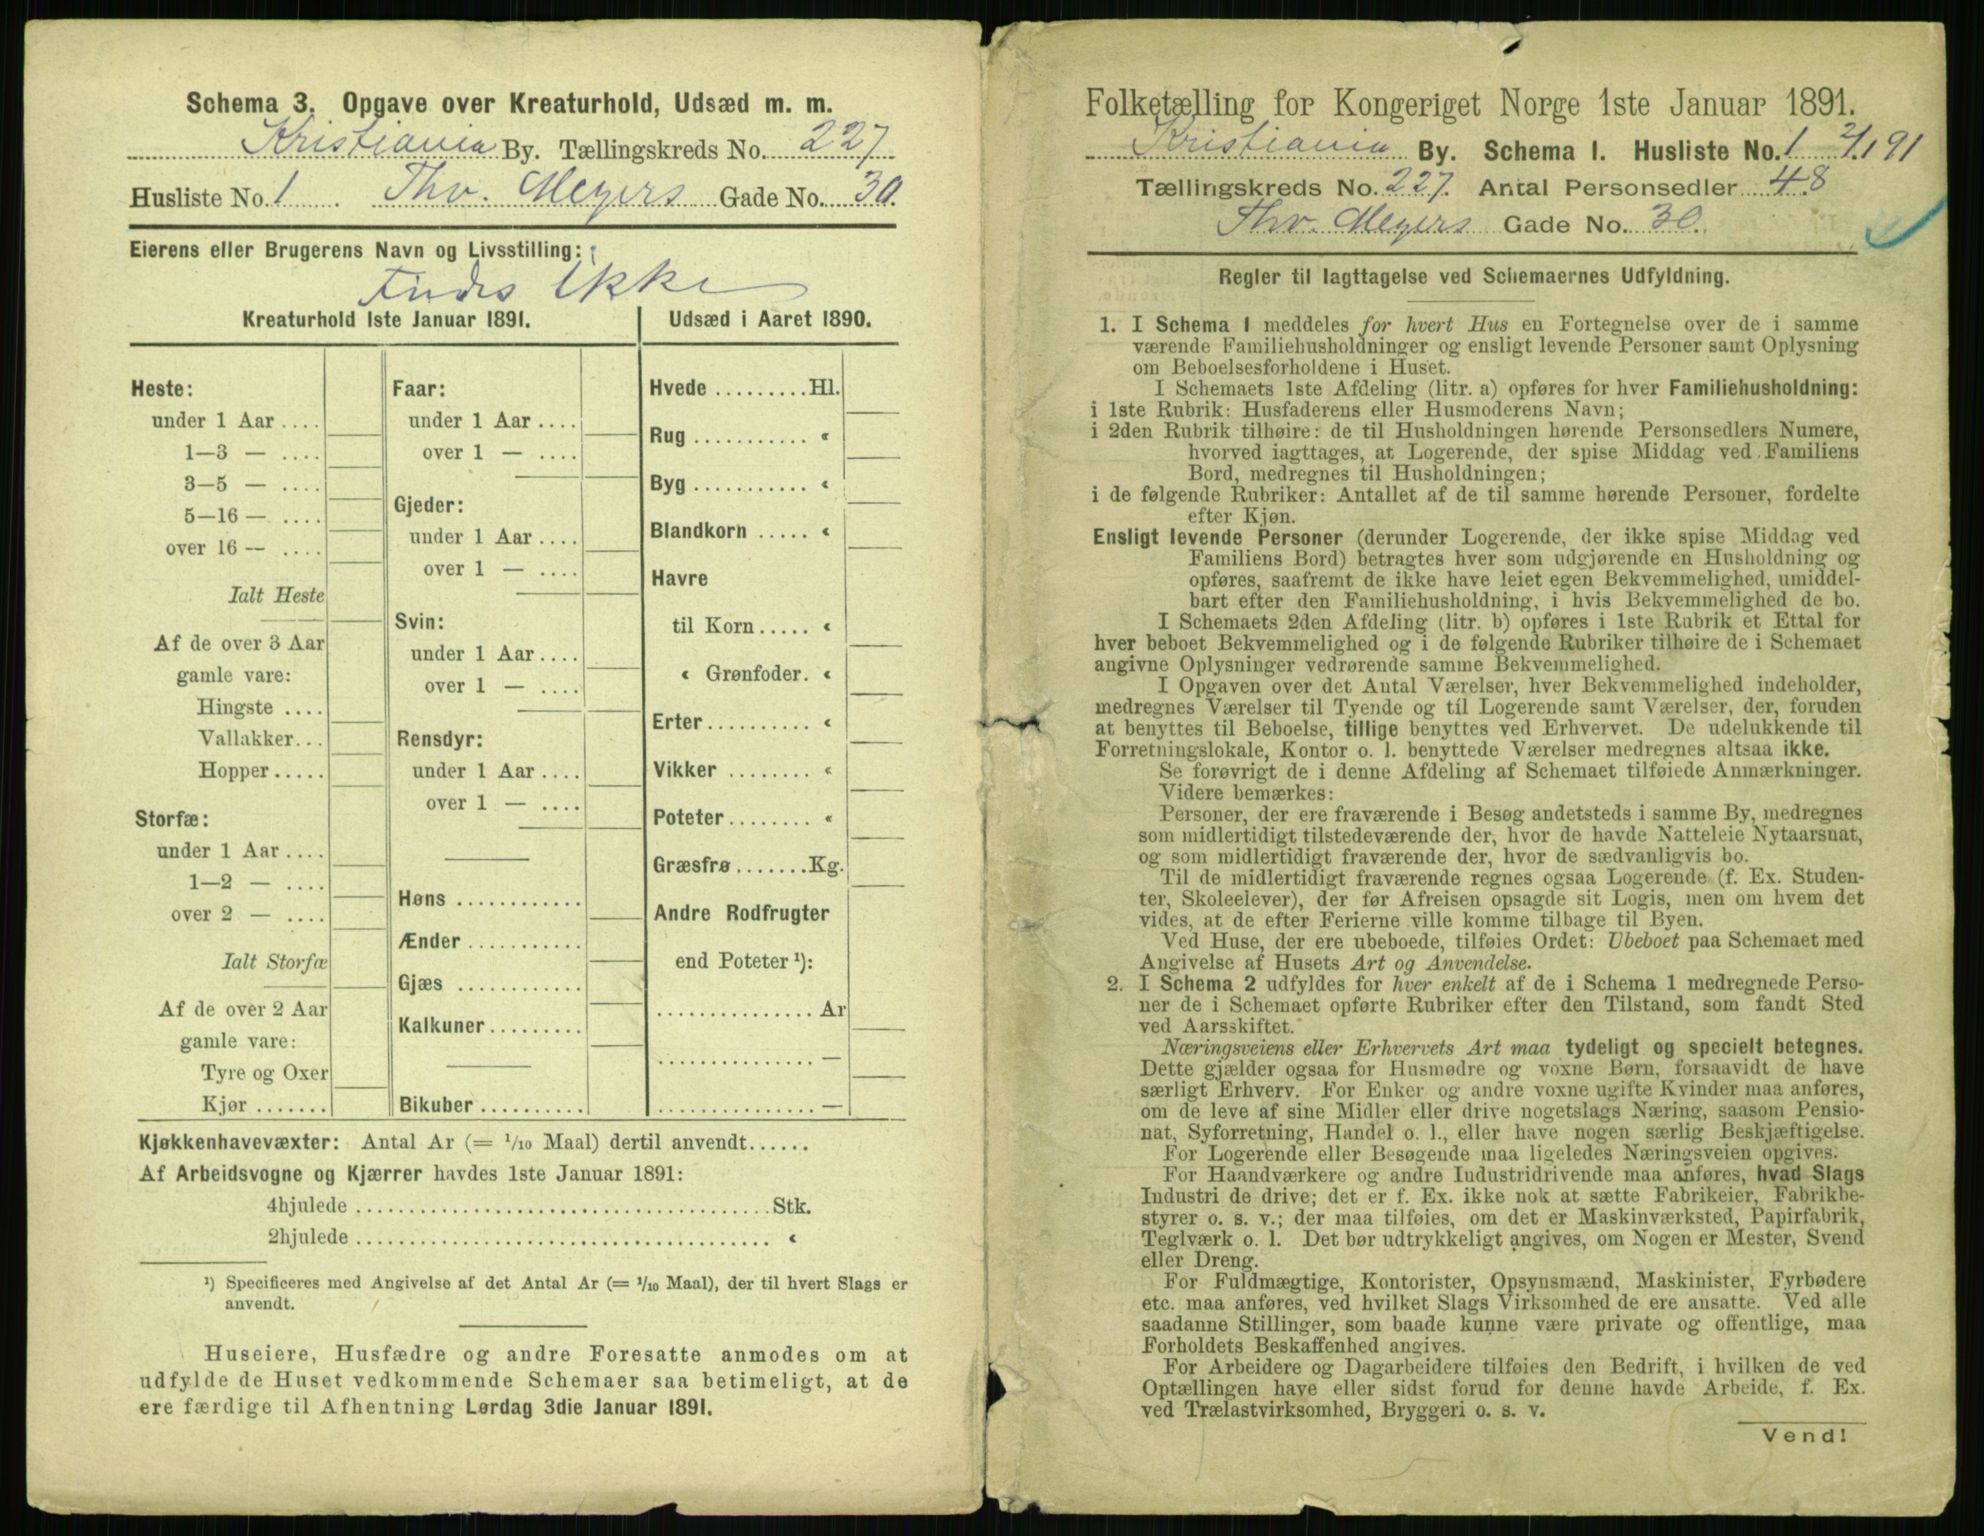 Schema 3. Opgave over Kreaturhold, Udsæd m. m.
Kristiania By. Tællingskreds No. 227
Husliste No. 1 Thv. Meyers Gade No. 30.
Eierens eller Brugerens Navn og Livsstilling:
Findes Ikke
Kreaturhold 1ste Januar 1891.
Heste:
under 1 Aar ....
1—3 — ....
3—5 — ....
5—16 — ....
over 16 — ....
Ialt Heste
Af de over 3 Aar
gamle vare:
Hingste ....
Vallakker...
Hopper.....
Storfæ:
under 1 Aar....
1—2 — ....
over 2 — ....
Ialt Storfæ
Af de over 2 Aar
gamle vare:
Tyre og Oxer
Kjør .......
Faar:
under 1 Aar ....
over 1 — ....
Gjeder:
under 1 Aar ....
over 1 — ....
Svin:
under 1 Aar....
over 1 — ....
Rensdyr:
under 1 Aar....
over 1 — ....
Høns ............
Ænder ...........
Gjæs ............
Kalkuner.........
Bikuber..........
Udsæd i Aaret 1890.
Hvede .........Hl.
Rug ........... «
Byg ........... «
Blandkorn ..... «
Havre
til Korn..... «
« Grønfoder. «
Erter .......... «
Vikker ........ «
Poteter........ «
Græsfrø .......Kg.
Andre Rodfrugter
end Poteter ¹):
...............Ar
...............—
...............—
Kjøkkenhavevæxter: Antal Ar (= 1/10 Maal) dertil anvendt......
Af Arbeidsvogne og Kjærrer havdes 1ste Januar 1891:
4hjulede .......................................Stk.
2hjulede ....................................... «
¹) Specificeres med Angivelse af det Antal Ar (= 1/10 Maal), der til hvert Slags er
anvendt.
Huseiere, Husfædre og andre Foresatte anmodes om at
udfylde de Huset vedkommende Schemaer saa betimeligt, at de
ere færdige til Afhentning Lørdag 3die Januar 1891.
Folketælling for Kongeriget Norge 1ste Januar 1891.
Kristiania By. Schema 1. Husliste No. 1 2/1 91
Tællingskreds No. 227. Antal Personsedler 48
Thv. Meyers Gade No. 30.
Regler til Iagttagelse ved Schemaernes Udfyldning.
1. I Schema 1 meddeles for hvert Hus en Fortegnelse over de i samme
værende Familiehusholdninger og ensligt levende Personer samt Oplysning
om Beboelsesforholdene i Huset.
I Schemaets 1ste Afdeling (litr. a) opføres for hver Familiehusholdning:
i 1ste Rubrik: Husfaderens eller Husmoderens Navn;
i 2den Rubrik tilhøire: de til Husholdningen hørende Personsedlers Numere,
hvorved iagttages, at Logerende, der spise Middag ved Familiens
Bord, medregnes til Husholdningen;
i de følgende Rubriker: Antallet af de til samme hørende Personer, fordelte
efter Kjøn.
Ensligt levende Personer (derunder Logerende, der ikke spise Middag ved
Familiens Bord) betragtes hver som udgjørende en Husholdning og
opføres, saafremt de ikke have leiet egen Bekvemmelighed, umiddel-
bart efter den Familiehusholdning, i hvis Bekvemmelighed de bo.
I Schemaets 2den Afdeling (litr. b) opføres i 1ste Rubrik et Ettal for
hver beboet Bekvemmelighed og i de følgende Rubriker tilhøire de i Schemaet
angivne Oplysninger vedrørende samme Bekvemmelighed.
I Opgaven over det Antal Værelser, hver Bekvemmelighed indeholder,
medregnes Værelser til Tyende og til Logerende samt Værelser, der, foruden
at benyttes til Beboelse, tillige benyttes ved Erhvervet. De udelukkende til
Forretningslokale, Kontor o. l. benyttede Værelser medregnes altsaa ikke.
Se forøvrigt de i denne Afdeling af Schemaet tilføiede Anmærkninger.
Videre bemærkes:
Personer, der ere fraværende i Besøg andetsteds i samme By, medregnes
som midlertidigt tilstedeværende der, hvor de havde Natteleie Nytaarsnat,
og som midlertidigt fraværende der, hvor de sædvanligvis bo.
Til de midlertidigt fraværende regnes ogsaa Logerende (f. Ex. Studen-
ter, Skoleelever), der før Afreisen opsagde sit Logis, men om hvem det
vides, at de efter Ferierne ville komme tilbage til Byen.
Ved Huse, der ere ubeboede, tilføies Ordet: Ubeboet paa Schemaet med
Angivelse af Husets Art og Anvendelse.
2. I Schema 2 udfyldes for hver enkelt af de i Schema 1 medregnede Perso-
ner de i Schemaet opførte Rubriker efter den Tilstand, som fandt Sted
ved Aarsskiftet.
Næringsveiens eller Erhvervets Art maa tydeligt og specielt betegnes.
Dette gjælder ogsaa for Husmødre og voxne Børn, forsaavidt de have
særligt Erhverv. For Enker og andre voxne ugifte Kvinder maa anføres,
om de leve af sine Midler eller drive nogetslags Næring, saasom Pensio-
nat, Syforretning, Handel o. l., eller have nogen særlig Beskjæftigelse.
For Logerende eller Besøgende maa ligeledes Næringsveien opgives.
For Haandværkere og andre Industridrivende maa anføres, hvad Slags
Industri de drive; det er f. Ex. ikke nok at sætte Fabrikeier, Fabrikbe-
styrer o. s. v.; der maa tilføies, om det er Maskinværksted, Papirfabrik,
Teglværk o. l. Det bør udtrykkeligt angives, om Nogen er Mester, Svend
eller Dreng.
For Fuldmægtige, Kontorister, Opsynsmænd, Maskinister, Fyrbødere
etc. maa anføres, ved hvilket Slags Virksomhed de ere ansatte. Ved alle
saadanne Stillinger, som baade kunne være private og offentlige, maa
Forholdets Beskaffenhed angives.
For Arbeidere og Dagarbeidere tilføies den Bedrift, i hvilken de ved
Optællingen have eller sidst forud for denne havde Arbeide, f. Ex.
ved Trælastvirksomhed, Bryggeri o. s. v.
Vend!